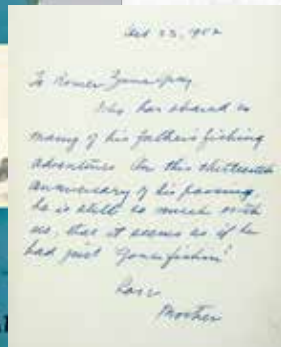 Oct 23, 1952
To Romer Zane Grey
Who has shared so
many of his father's fishing
adventures. On this thirteenth
anniversary of his passing,
he is still so much with
us, that it seems as if he
had just "gone fishin'"
Love
Mother